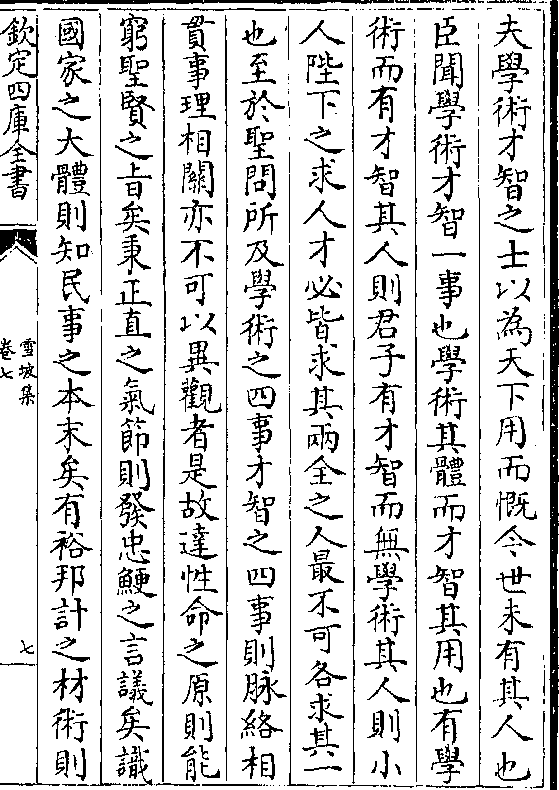 夫學術才智之士以為天下用而慨今世未有其人也
臣聞學術才智一事也學術其體而才智其用也有學
術而有才智其人則君子有才智而無學術其人則小
人陛下之求人才必皆求其兩全之人最不可各求其一
也至於聖問所及學術之四事才智之四事則脉絡相
貫事理相關亦不可以異觀者是故達性命之原則能
窮聖賢之旨矣秉正直之氣節則發忠鯁之言議矣識
國家之大體則知民事之本末矣有裕邦計之材術則
欽定四庫全書
雪坡集
卷七
七